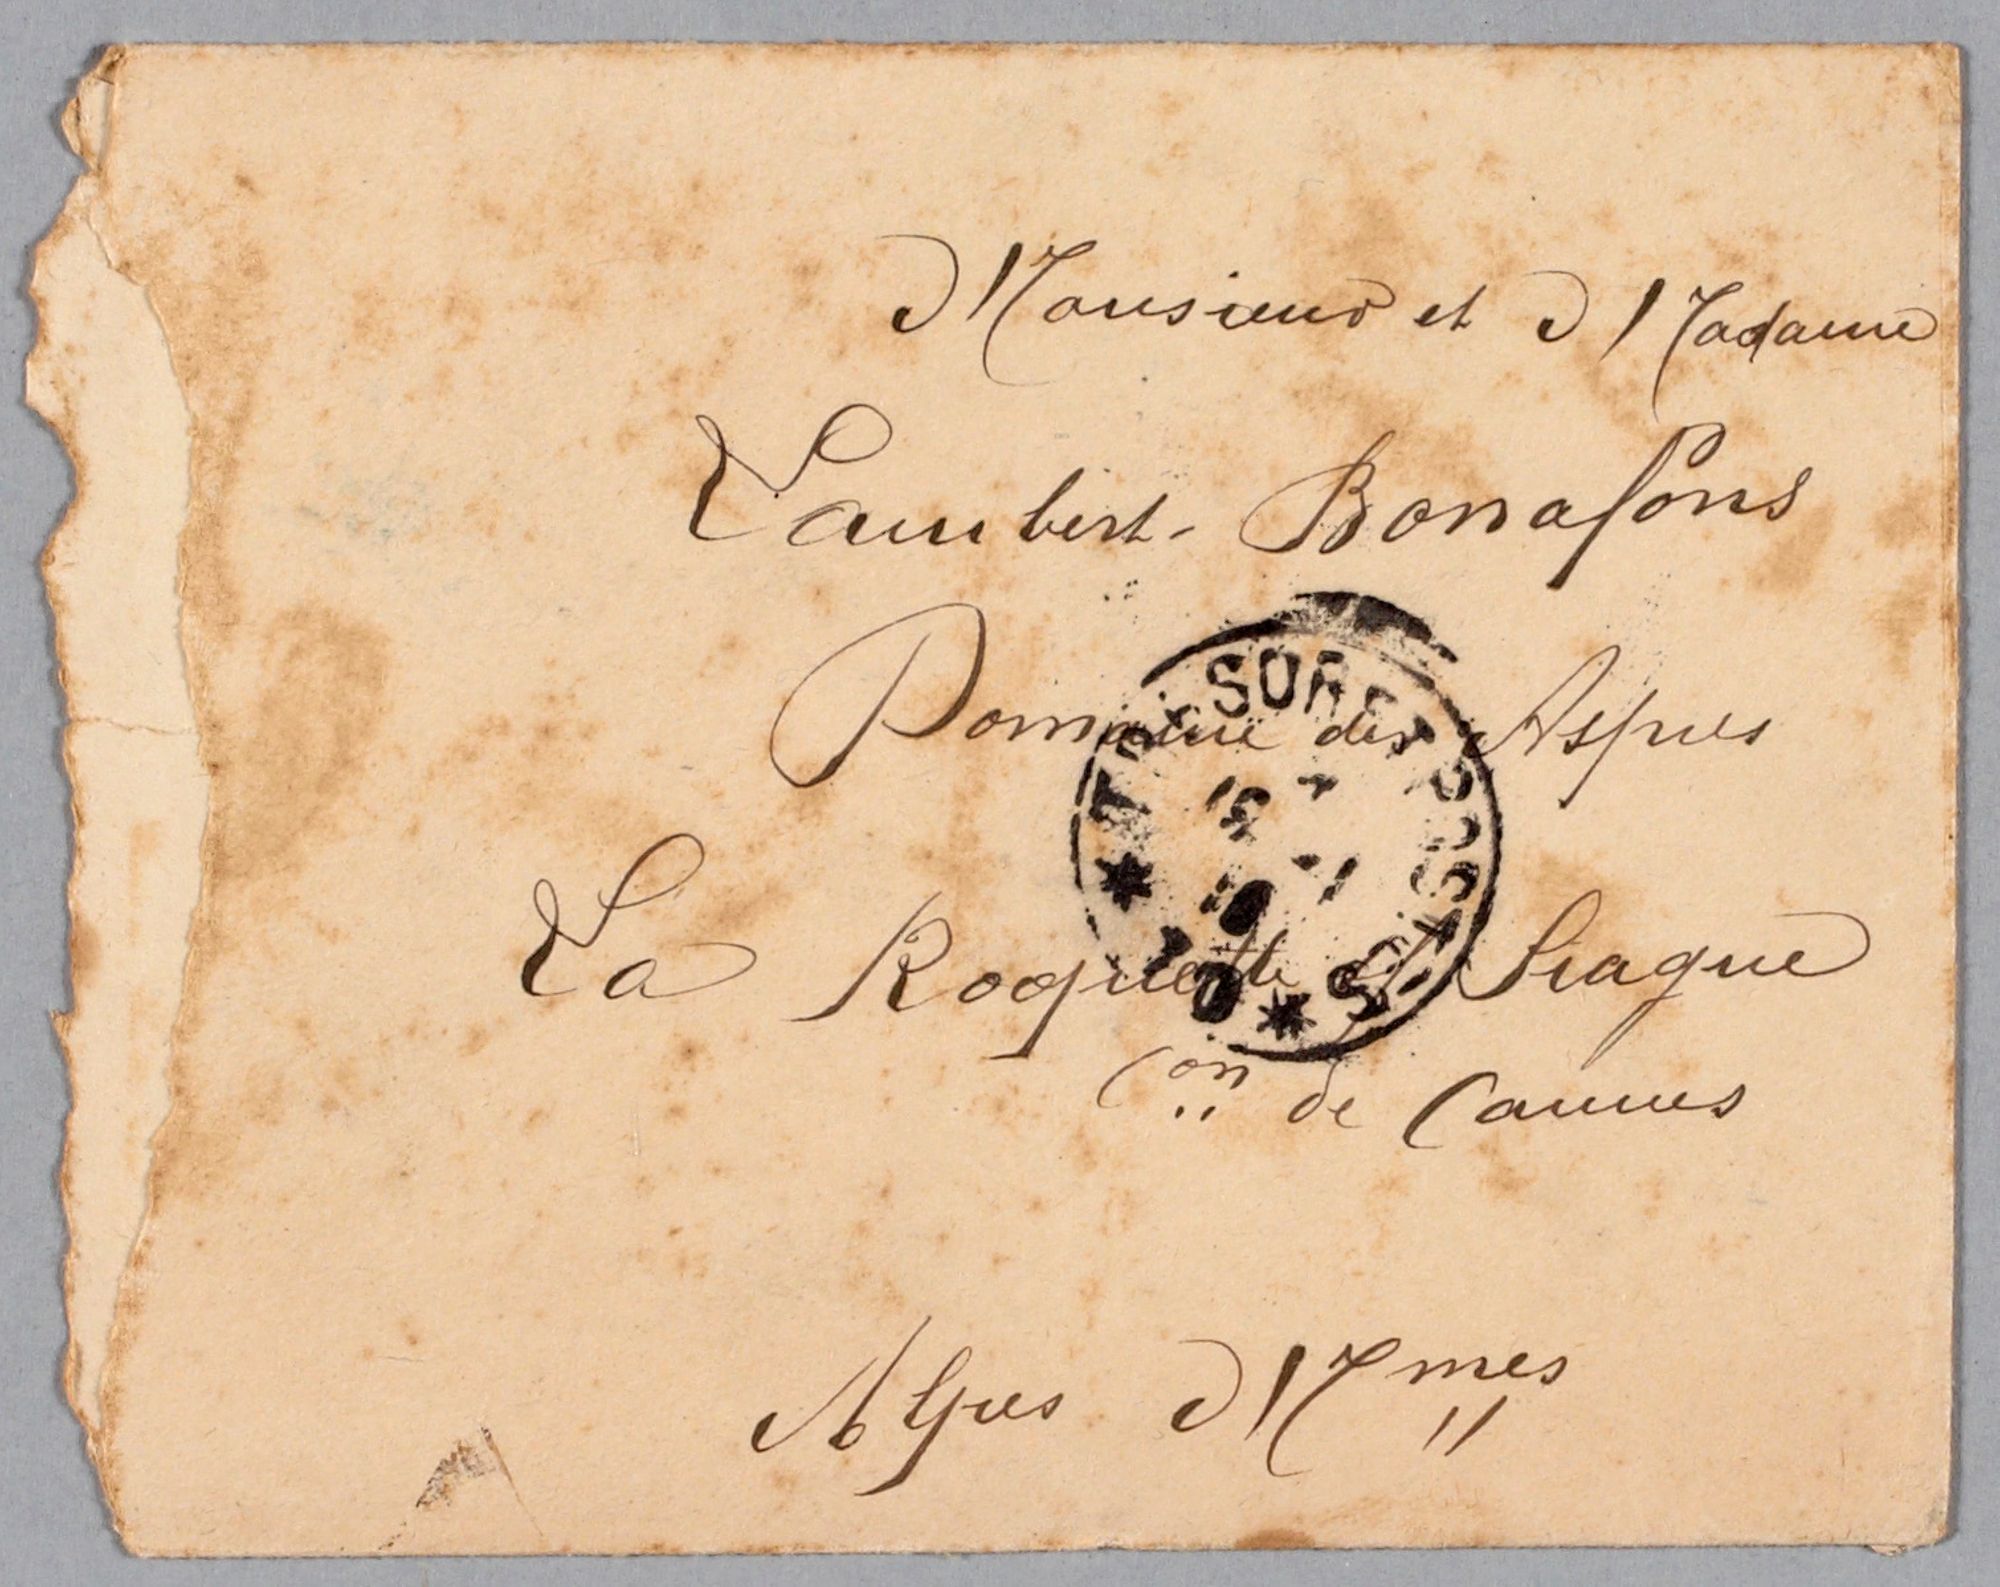 Monsieur et Madame
Lambert-Bonafons
Domaine des Aspres
La Roquette s/ Siagne
Con de Cannes
Alpes Mmes
TRESOR ET POSTES